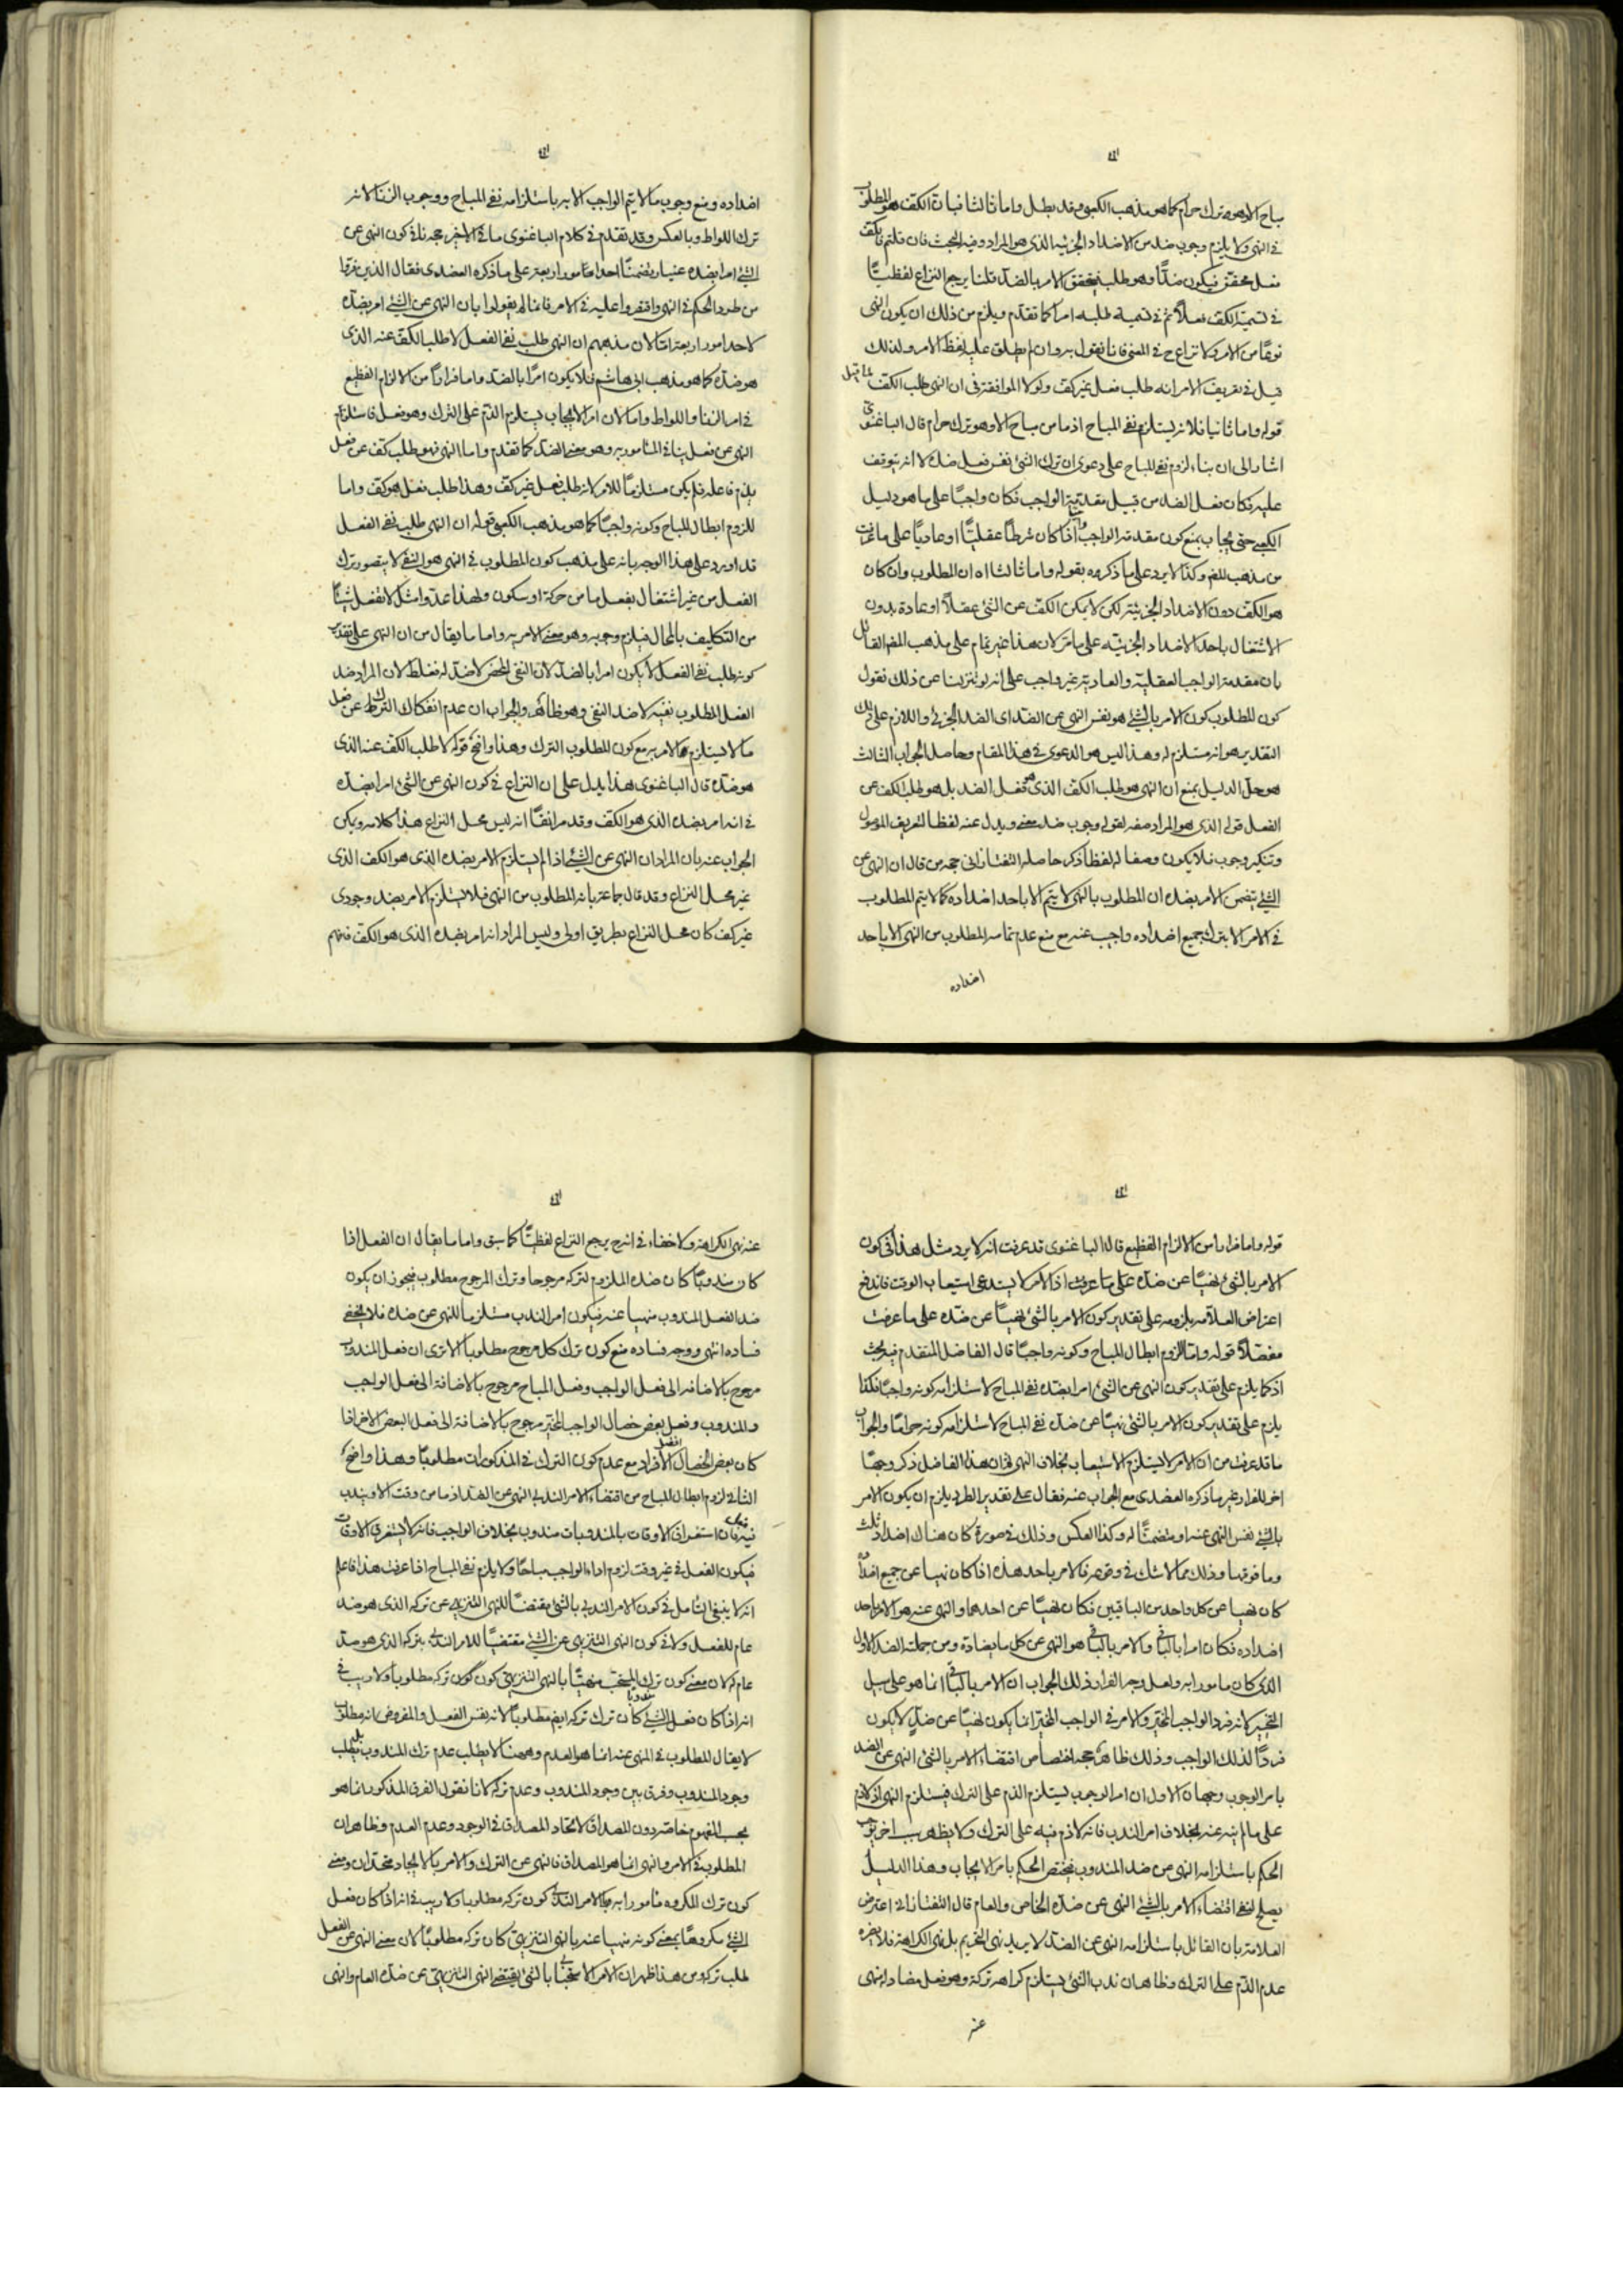 مباح الا وهو ترك حرام كما هو مذهب الكعبي وقد بطل واما ثالثا فبان الكف هو المطلوب
في النهي ولا يلزم وجوب ضد من الاضداد الجزئية الذي هو المراد وفيه البحث فان قلتم فالكف
فعل محقق فيكون ضدًا وهو طلب فيتحقق الامر بالضد قلنا يرجع النزاع لفظيًا
في تسمية الكف فعلاً ثم في تسمية طلبه امرا كما تقدم ويلزم من ذلك ان يكون النهي
نوعًا من الامر ولا نزاع ح في المعنى فانا نقول به وان لم يطلق عليه لفظ الامر ولذلك
قيل في تعريف الامر انه طلب فعل غير كف ولولا الموافقة في ان النهي طلب الكف لما قيل
قوله واما ثانيا فلانه يستلزم نفي المباح اذ ما من مباح الا وهو ترك حرام قال الباغنوي
اشار الى ان بناء لزوم نفي المباح على دعوى ان ترك الشئ نفس فعل ضده لا انه يتوقف
عليه فكان فعل الضد من قبيل مقدمة الواجب فكان واجبًا على ما هو دليل
الكعبي حتى يجاب بمنع كون مقدمة الواجب واجبا اذا كان شرطًا عقليًا او عاديًا على ما عرفت
من مذهب المص وكذا لا يرد على ما ذكروه بقوله واما ثالثا اه ان المطلوب وان كان
هو الكف دون الاضداد الجزئية لكن لا يمكن الكف عن الشئ عقلاً او عادة بدون
الاشتغال باحد الاضداد الجزئية على ما مر لان هذا غير تمام على مذهب المص القائل
بان مقدمة الواجب العقلية والعادية غير واجب على انه لو تنزلنا عن ذلك نقول
كون المطلوب كون الامر بالشئ هو نفس النهي عن الضد اي الضد الجزئي واللازم على ذلك
التقدير هو انه مستلزم له وهذا ليس هو الدعوى في هذا المقام وحاصل الجواب الثالث
هو حل الدليل بمنع ان النهي هو طلب الكف الذي هو فعل الضد بل هو طلب الكف عن
الفعل قوله الذي هو المراد صفة لقوله وجوب ضد معنى ويدل عنه لفظا لتعريف الموصول
وتنكير وجوب فلا يكون وصفا له لفظا ذكر حاصله التفتازاني حجة من قال ان النهي عن
الشئ يتضمن الامر بضده ان المطلوب بالنهي لا يتم الا باحد اضداده كما لا يتم المطلوب
في الامر الا بترك جميع اضداده واجيب عنه مع منع عدم تمامه المطلوب من النهي الا باحد
اضداده
اضداده ومنع وجوب ما لا يتم الواجب الا به باستلزامه نفي المباح ووجوب الزنا لانه
ترك اللواط وبالعكس وقد تقدم في كلام الباغنوي ما في الاخير حجة نافي كون النهي عن
الشئ امرا بضده عينا وتضمنًا احد امور اربعة على ما ذكره العضدي فقال الذين فروا
من طرد الحكم في النهي واقتصروا عليه في الامر فانما لم يقولوا بان النهي عن الشئ امر بضده
لاحد امور اربعة اما لان مذهبهم ان النهي طلب نفي الفعل لا طلب الكف عنه الذي
هو ضده كما هو مذهب ابي هاشم فلا يكون امرًا بالضد واما فرارًا من الالزام الفظيع
في امر الزنا واللواط واما لان امر الايجاب يستلزم الذم على الترك وهو فعل فاستلزم
النهي عن فعل ينافي المأمور به وهو معنى الضد كما تقدم واما النهي فهو طلب كف عن فعل
يذم فاعله فلم يكن مستلزمًا للامر لانه طلب فعل غير كف وهذا طلب فعل هو كف واما
للزوم ابطال المباح وكونه واجبًا كما هو مذهب الكعبي قوله ان النهي طلب نفي الفعل
قد اورد على هذا الوجه بانه على مذهب كون المطلوب في النهي هو النفي لا يتصور ترك
الفعل من غير اشتغال بفعل ما من حركة او سكون ولهذا عدوا مثل لا تفعل شيئًا
من التكليف بالمحال فيلزم وجوبه وهو معنى الامر به واما ما يقال من ان النهي على تقدير
كونه طلب نفي الفعل لا يكون امرا بالضد لان النفي المحض لا ضد له فغلط لان المراد ضد
الفعل المطلوب نفيه لا ضد النفي وهو ظاهر والجواب ان عدم انفكاك الترك عن فعل
ما لا يستلزم الامر به مع كون المطلوب الترك وهذا واضح قوله لا طلب الكف عنه الذي
هو ضده قال الباغنوي هذا يدل على ان النزاع في كون النهي عن الشئ امرا بضده
في انه امر بضده الذي هو الكف وقد مر انفًا انه ليس محل النزاع هذا كلامه ويمكن
الجواب عنه بان المراد ان النهي عن الشئ اذا لم يستلزم الامر بضده الذي هو الكف الذي
غير محل النزاع وقد قال جماعة بانه المطلوب من النهي فلا يستلزم الامر بضد وجودي
غير كف كان محل النزاع بطريق اولى وليس المراد انه امر بضده الذي هو الكف فتفهم
قوله واما فرارا من الالزام الفظيع قال الباغنوي قد عرفت انه لا يرد مثل هذا في كون
الامر بالشئ نهيًا عن ضده على ما عرفت اذ الامر لا يستدعي استيعاب الوقت فاندفع
اعتراض العلامة بلزومه على تقدير كون الامر بالشئ نهيًا عن ضده على ما عرفت
مفصلاً قوله واما لزوم ابطال المباح وكونه واجبًا قال الفاضل المتقدم فيه بحث
اذ كما يلزم على تقدير كون النهي عن الشئ امرا بضده نفي المباح لاستلزامه كونه واجبًا فكذا
يلزم على تقدير كون الامر بالشئ نهيًا عن ضده نفي المباح لاستلزامه كونه حرامًا والجواب
ما قد عرفت من ان الامر لا يستلزم الاستيعاب بخلاف النهي ثم ان هذا الفاضل ذكر وجهًا
اخر للفرار غير ما ذكره العضدي مع الجواب عنه فقال على تقدير الطرد يلزم ان يكون الامر
بالشئ نفس النهي عنه او متضمنًا له وكذا العكس وذلك في صورة كان هناك اضداد ثلث
وما فوقها وذلك مما لا شك في وقوعه فالامر باحد هذه اذا كان نهيا عن جميع اضداده
كان نهيا عن كل واحد من الباقيين فكان نهيًا عن احدهما والنهي عنه هو الامر باحد
اضداده فكان امرا بالباقي والامر بالباقي هو النهي عن كل ما يضاده ومن جملته الضد الاول
الذي كان مامورا به ولعل وجه الفرار ذلك الجواب ان الامر بالباقي انما هو على سبيل
التخيير لانه فرد الواجب المخير والامر في الواجب المخير انما يكون نهيًا عن ضد لا يكون
فردًا لذلك الواجب وذلك ظاهر حجة اختصاص اقتضاء الامر بالشئ النهي عن الضد
بامر الوجوب وجهان الاول ان امر الوجوب يستلزم الذم على الترك فيستلزم النهي اذ لا ذم
على ما لم ينه عنه بخلاف امر الندب فانه لا ذم فيه على الترك ولا يظهر سبب اخر يوجب
الحكم باستلزامه النهي عن ضد المندوب فيختص الحكم بامر الايجاب وهذا الدليل
يصلح لنفي اقتضاء الامر بالشئ النهي عن ضده الخاص والعام قال التفتازاني اعترض
العلامة بان القائل باستلزامه النهي عن الضد لا يريد نهي التحريم بل نهي الكراهة فلا يضره
عدم الذم على الترك وظاهر ان ندب الشئ يستلزم كراهة تركه وهو فعل مضاد له نهى
عنه
عنه نهي الكراهة ولا خفاء في انه ح يرجع النزاع لفظيًا كما سبق واما ما يقال ان الفعل اذا
كان مندوبًا كان ضده الملزوم لتركه مرجوحا وترك المرجوح مطلوب فيجوز ان يكون
ضد الفعل المندوب منهيا عنه فيكون امر الندب مستلزما للنهي عن ضده فلا يخفى
فساده انتهى ووجه فساده منع كون ترك كل مرجوح مطلوبا الا ترى ان فعل المندوب
مرجوح بالاضافة الى فعل الواجب وفعل المباح مرجوح بالاضافة الى فعل الواجب
والمندوب وفعل بعض خصال الواجب المخير مرجوح بالاضافة الى فعل البعض الاخر اذا
كان بعض الخصال افضل الافراد مع عدم كون الترك في المذكورات مطلوبًا وهذا واضح
الثاني لزوم ابطال المباح من اقتضاء الامر الندبي النهي عن الضد اذ ما من وقت الا ويندب
فيه فعل فان استغراق الاوقات بالمندوبات مندوب بخلاف الواجب فانه لا يستغرق الاوقات
فيكون الفعل في غير وقت لزوم اداء الواجب مباحًا ولا يلزم نفي المباح اذا عرفت هذا فاعلم
انه لا ينبغي التأمل في كون الامر الندبي بالشئ مقتضيًا للنهي التنزيهي عن تركه الذي هو ضد
عام للفعل ولا في كون النهي التنزيهي عن الشئ مقتضيًا للامر الندبي بتركه الذي هو ضد
عام له لان معنى كون ترك المستحب منهيًا بالنهي التنزيهي كون ترك تركه مطلوبا ولا ريب في
انه اذا كان فعل الشئ مندوبا كان ترك تركه ايضا مطلوبًا لانه نفس الفعل والمفروض انه مطلوب
لا يقال المطلوب في المنهي عنه انما هو العدم وههنا لا يطلب عدم ترك المندوب بل يطلب
وجود المندوب وفرق بين وجود المندوب وعدم تركه لانا نقول الفرق المذكور انما هو
بحسب المفهوم خاصة دون المصداق لاتحاد المصداق في الوجود وعدم العدم وظاهر ان
المطلوب في الامر والنهي انما هو المصداق فالنهي عن الترك والامر بالايجاد متحدان ومعنى
كون ترك المكروه مامورا به بالامر الندبي كون تركه مطلوبا ولا ريب في انه اذا كان فعل
الشئ مكروهًا بمعنى كونه منهيا عنه بالنهي التنزيهي كان تركه مطلوبًا لان معنى النهي عن الفعل
طلب تركه ومن هذا ظهر ان الامر الاستحبابي بالشئ يقتضي النهي التنزيهي عن ضده العام والنهي